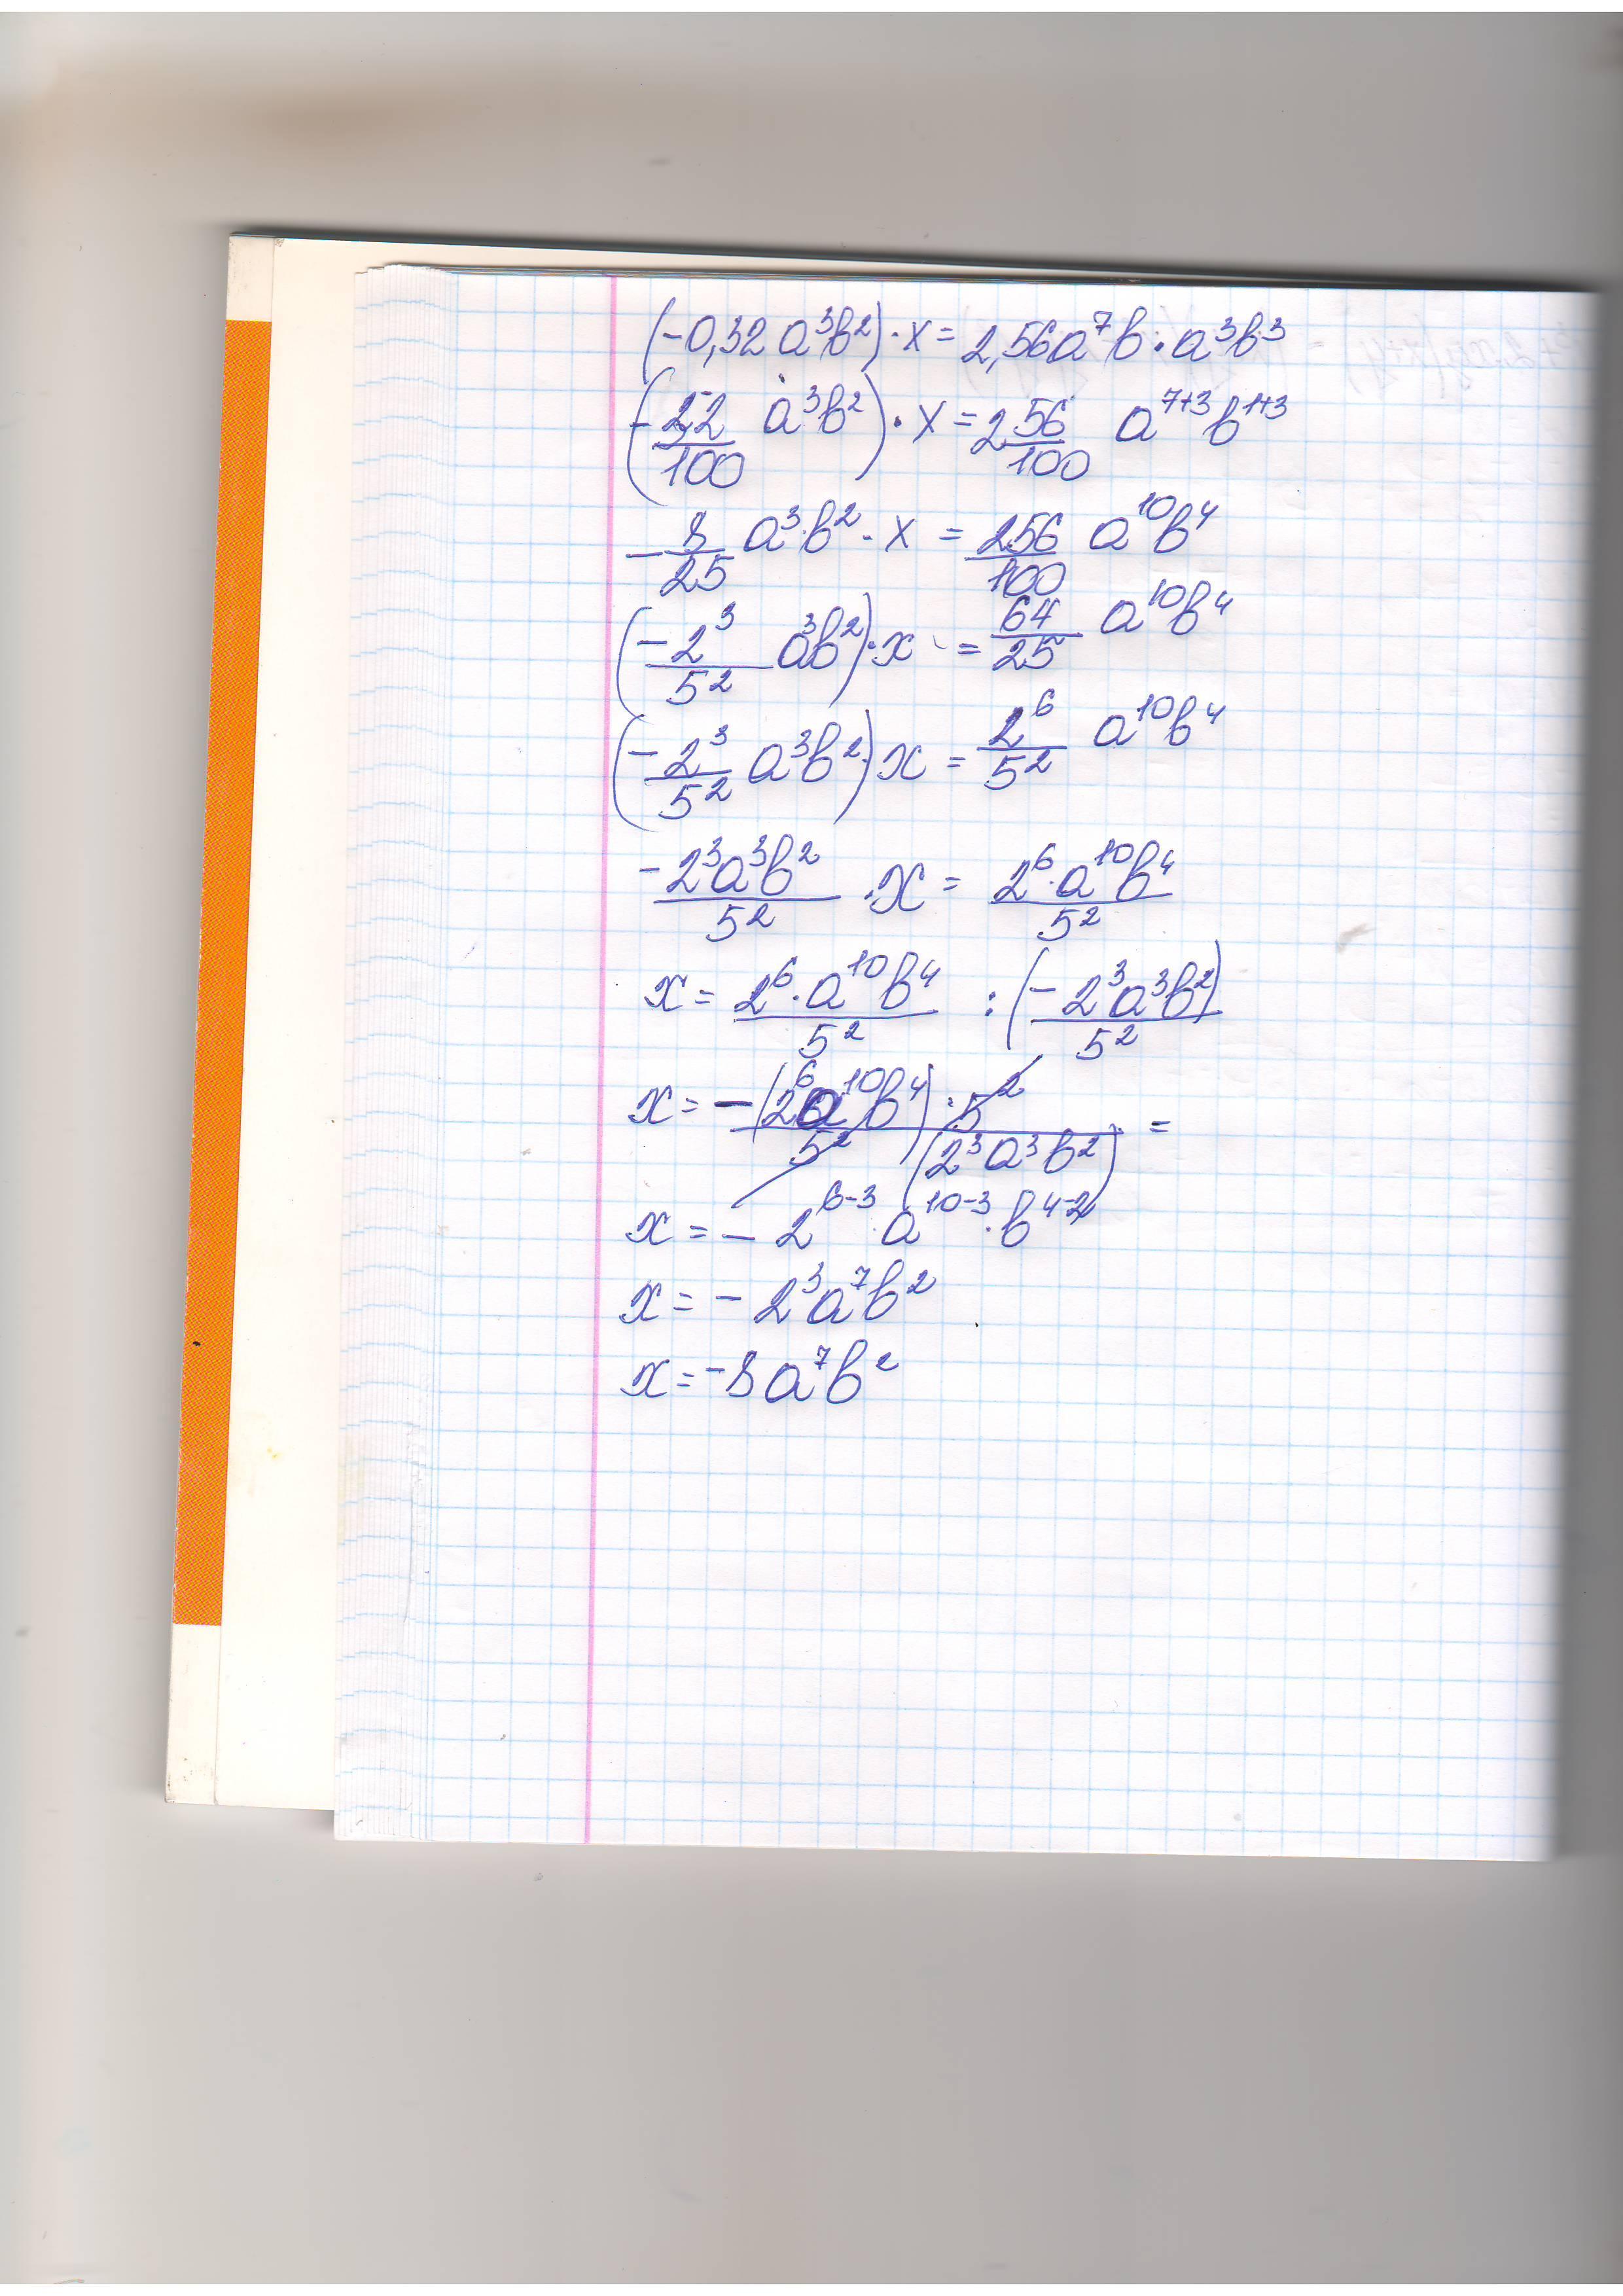 (-0,32 a³b²)·x = 2,56a⁷b·a³b³
(-32/100 a³b²)·x = 2 56/100 a⁷⁺³b¹⁺³
-8/25 a³b²·x = 256/100 a¹⁰b⁴
(-2³/5² a³b²)·x = 64/25 a¹⁰b⁴
(-2³/5² a³b²)x = 2⁶/5² a¹⁰b⁴
-2³a³b²/5² ·x = 2⁶·a¹⁰b⁴/5²
x = 2⁶·a¹⁰b⁴/5² : (-2³a³b²/5²)
x = -(2⁶a¹⁰b⁴)·5²/5²(2³a³b²) =
x = -2⁶⁻³·a¹⁰⁻³·b⁴⁻²
x = -2³a⁷b²
x = -8a⁷b²